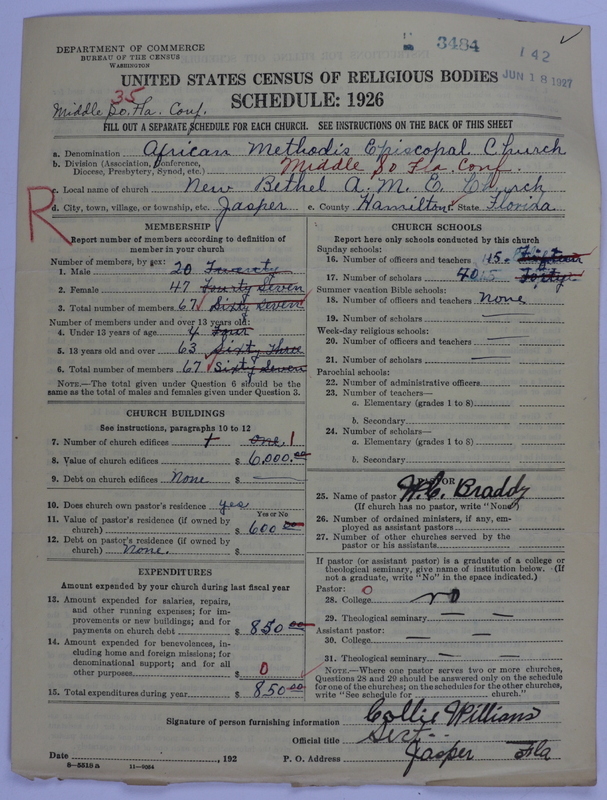 3484
142
JUN 18 1927
DEPARTMENT OF COMMERCE
BUREAU OF THE CENSUS
WASHINGTON
UNITED STATES CENSUS OF RELIGIOUS BODIES
SCHEDULE: 1926
35
Middle So. Fla. Conf.
FILL OUT A SEPARATE SCHEDULE FOR EACH CHURCH. SEE INSTRUCTIONS ON THE BACK OF THIS SHEET
a. Denomination African Methodis Episcopal Church
b. Division (Association, Conference, Diocese, Presbytery, Synod, etc.) Middle So Fla Conf.
c. Local name of church New Bethel A. M. E. Church
d. City, town, village, or township, etc. Jasper e. County Hamilton f. State Florida
R
MEMBERSHIP
Report number of members according to definition of
member in your church
Number of members, by sex:
1. Male 20 Twenty
2. Female 47 Fourty Seven
3. Total number of members 67 Sixty Seven
Number of members under and over 13 years old:
4. Under 13 years of age 4 Four
5. 13 years old and over 63 Sixty Three
6. Total number of members 67 Sixty Seven
NOTE.—The total given under Question 6 should be the
same as the total of males and females given under Question 3.
CHURCH BUILDINGS
See instructions, paragraphs 10 to 12
7. Number of church edifices 1 One 1
8. Value of church edifices $ 6,000.00
9. Debt on church edifices None $
10. Does church own pastor's residence yes
Yes or No
11. Value of pastor's residence (if owned by
church) $ 600 00
12. Debt on pastor's residence (if owned by
church) None. $
EXPENDITURES
Amount expended by your church during last fiscal year
13. Amount expended for salaries, repairs,
and other running expenses; for im-
provements or new buildings; and for
payments on church debt $ 850 00
14. Amount expended for benevolences, in-
cluding home and foreign missions; for
denominational support; and for all
other purposes $ 0
15. Total expenditures during year $ 850 00
CHURCH SCHOOLS
Report here only schools conducted by this church
Sunday schools:
16. Number of officers and teachers 15 Fifteen
17. Number of scholars 40 Fortyr
Summer vacation Bible schools:
18. Number of officers and teachers None
19. Number of scholars
Week-day religious schools:
20. Number of officers and teachers
21. Number of scholars
Parochial schools:
22. Number of administrative officers
23. Number of teachers—
a. Elementary (grades 1 to 8)
b. Secondary
24. Number of scholars—
a. Elementary (grades 1 to 8)
b. Secondary
PASTOR
25. Name of pastor W. C. Braddy
(If church has no pastor, write "None")
26. Number of ordained ministers, if any, em-
ployed as assistant pastors
27. Number of other churches served by the
pastor or his assistants
If pastor (or assistant pastor) is a graduate of a college or
theological seminary, give name of institution below. (If
not a graduate, write "No" in the space indicated.)
Pastor: 0
28. College no
29. Theological seminary
Assistant pastor:
30. College
31. Theological seminary
NOTE.—Where one pastor serves two or more churches,
Questions 28 and 29 should be answered only on the schedule
for one of the churches; on the schedules for the other churches,
write "See schedule for church."
Signature of person furnishing information Collie Willians
Official title
Date , 192 P. O. Address Jasper Fla
8—5519 a 11—9084